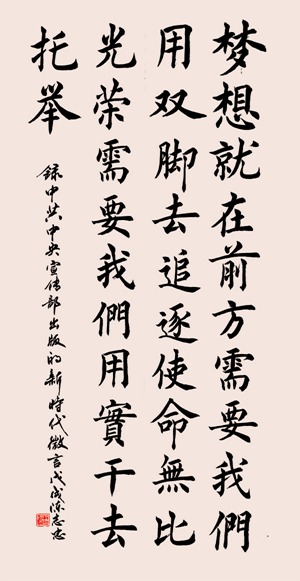 梦想就在前方需要我們
用双脚去追逐使命無比
光荣需要我們用實干去
托举
録中共中央宣传部出版的新時代微言戊戌陈志忠